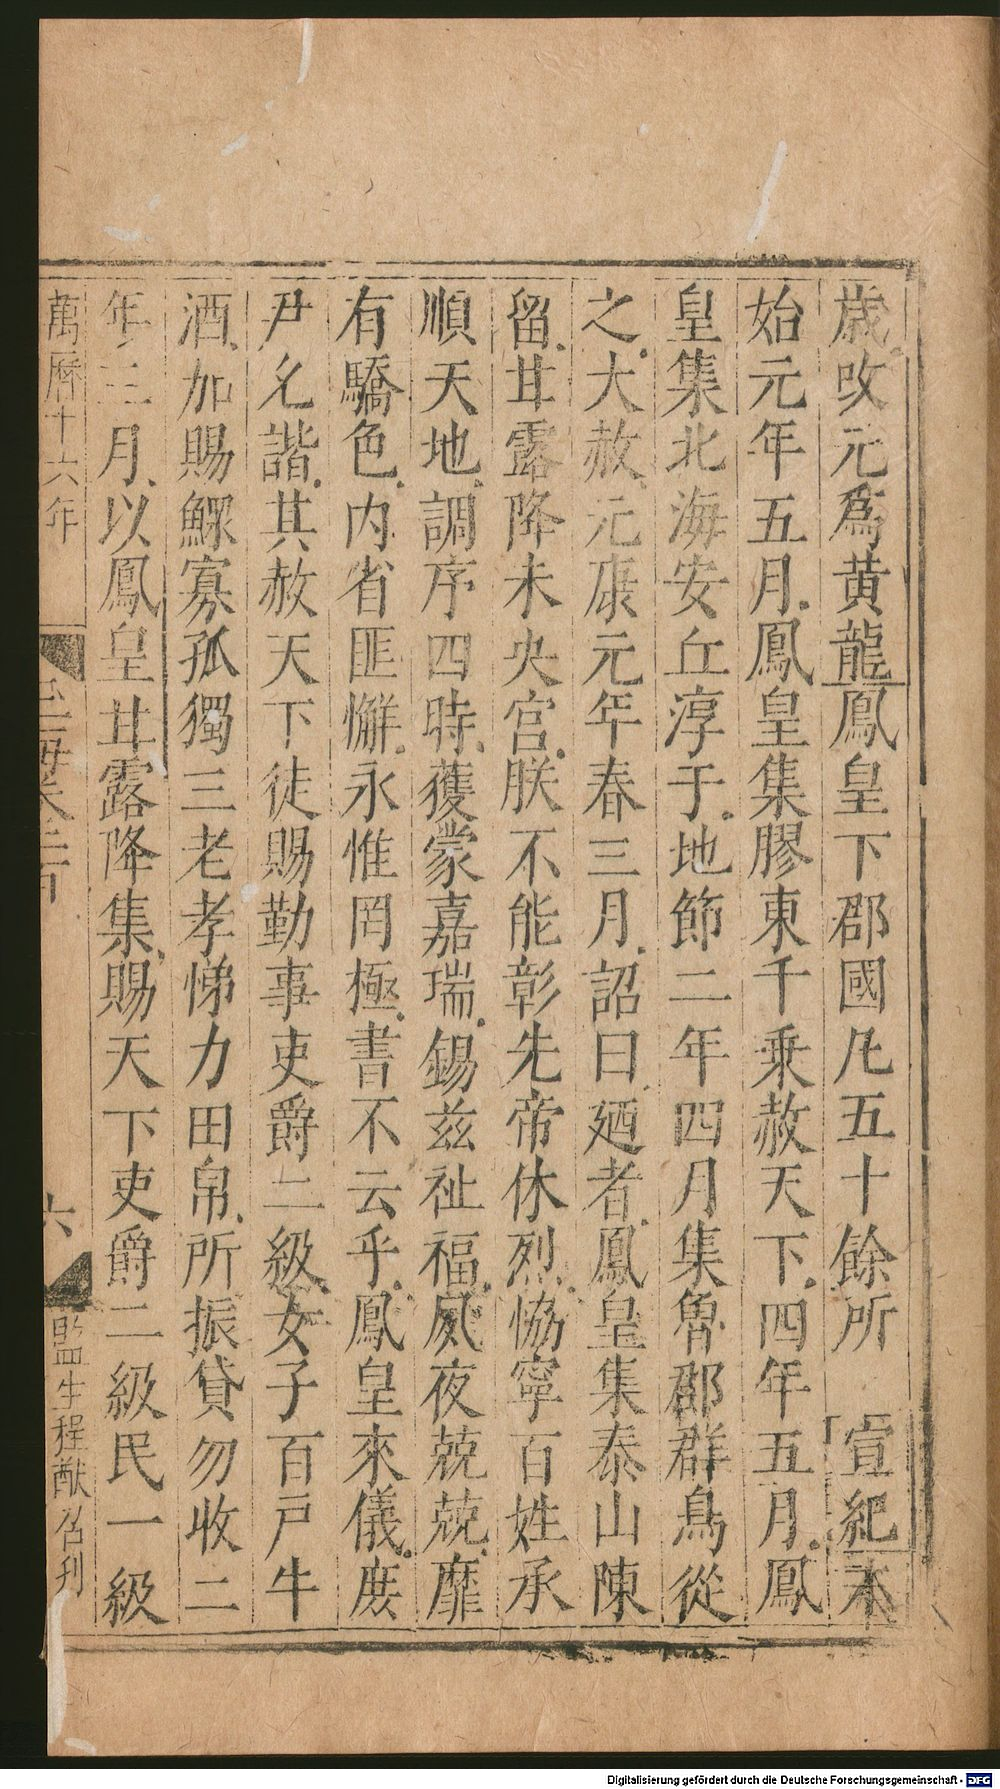 歳攺元為黄龍鳳皇下郡國凡五十餘所 宣紀本
始元年五月鳳皇集膠東千乗赦天下四年五月鳳
皇集北海安丘淳于地節二年四月集魯郡群鳥從
之大赦元康元年春三月詔曰廼者鳳皇集泰山陳
留甘露降未央宫朕不能彰先帝休烈恊寧百姓承
順天地調序四時獲蒙嘉瑞錫兹祉福夙夜兢兢靡
有驕色内省匪懈永惟罔極書不云乎鳳皇來儀庶
尹允諧其赦天下徒賜勤事吏爵二級女子百戸牛
酒加賜鰥寡孤獨三老孝悌力田帛所振貸勿收二
年三月以鳳皇甘露降集賜天下吏爵二級民一級
萬曆十六年
玉海卷二百
六
監生程猷名刋
Digitalisierung gefördert durch die Deutsche Forschungsgemeinschaft - DFG